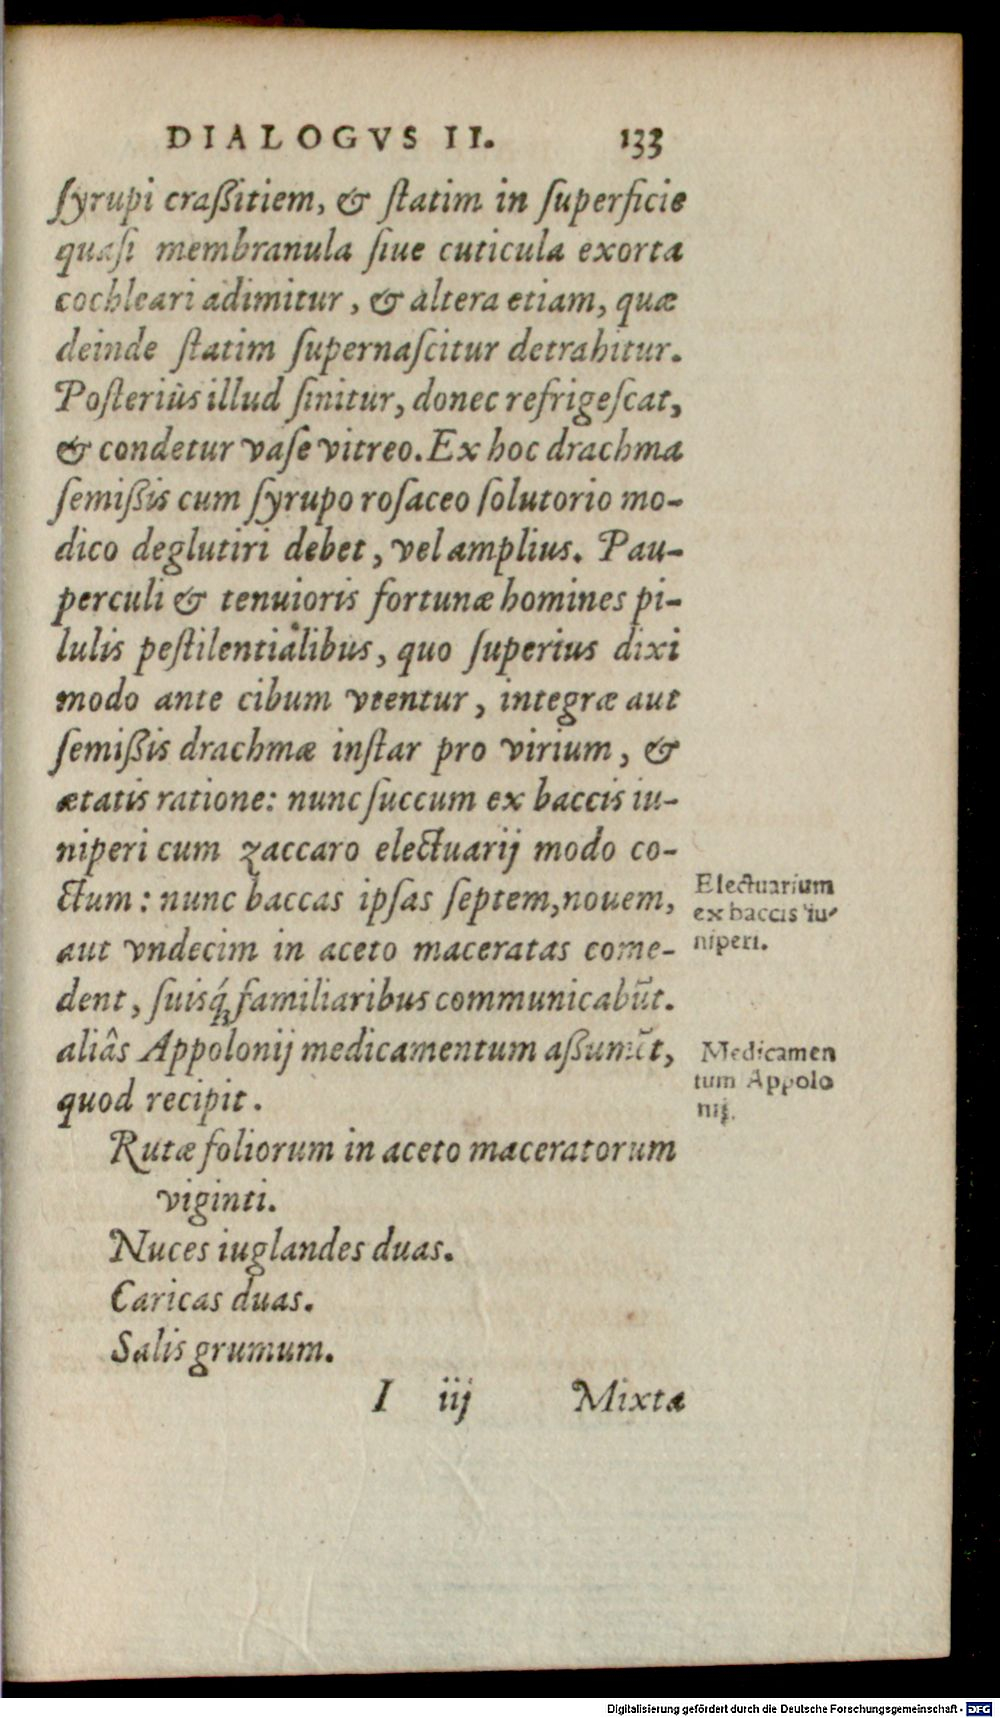 DIALOGVS II. 133
ſyrupi craßitiem, & ſtatim in ſuperficie
quaſi membranula ſiue cuticula exorta
cochleari adimitur, & altera etiam, quæ
deinde ſtatim ſupernaſcitur detrahitur.
Poſteriùs illud ſinitur, donec refrigeſcat,
& condetur vaſe vitreo. Ex hoc drachma
ſemißis cum ſyrupo roſaceo ſolutorio mo-
dico deglutiri debet, vel amplius. Pau-
perculi & tenuioris fortunæ homines pi-
lulis peſtilentialibus, quo ſuperius dixi
modo ante cibum vtentur, integræ aut
ſemißis drachmæ inſtar pro virium, &
ætatis ratione: nunc ſuccum ex baccis iu-
niperi cum zaccaro electuarij modo co-
ctum: nunc baccas ipſas ſeptem, nouem,
Electuarium
ex baccis iu-
niperi.
aut vndecim in aceto maceratas come-
dent, ſuisq́ꝫ familiaribus communicabūt.
aliâs Appolonij medicamentum aßumẽt,
Medicamen
tum Appolo
nij.
quod recipit.
Rutæ foliorum in aceto maceratorum
viginti.
Nuces iuglandes duas.
Caricas duas.
Salis grumum.
I iij Mixta
Digitalisierung gefördert durch die Deutsche Forschungsgemeinschaft - DFG